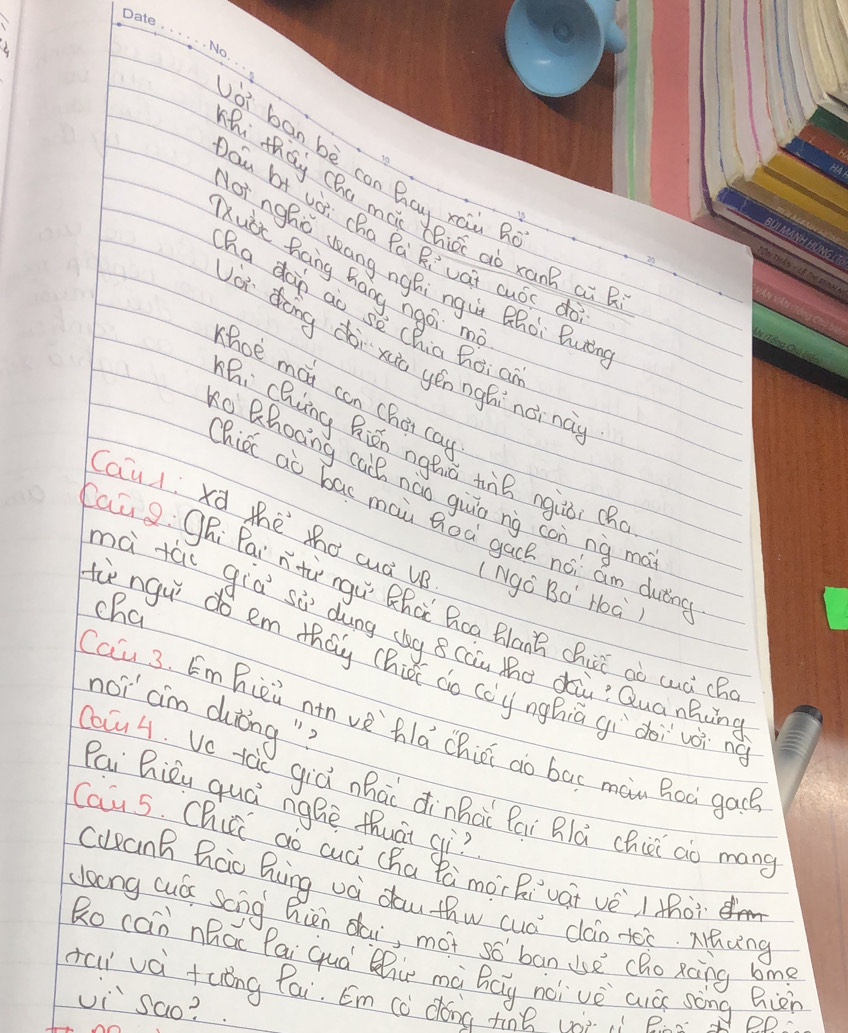 Date No
Với bạn bè con hay xấu hổ
Khi thấy cha mặc chiếc áo xanh cũ kĩ
Đâu bt với cha là kỉ vật cuộc đời
Nơi nghĩa trang nghi ngút khói hương
Trước hàng hàng ngôi mộ
Cha đắp áo sẻ chia hơi ấm
Với đồng đội xưa yên nghỉ nơi này.
Khoé mắt con chợt cay
Khi chứng kiến nghĩa tình người cha
Ko khoảng cách nào giữa ng còn ng mất
Chiếc áo bạc màu hoá gạch nối âm dương.
(Ngô Bá Hoà)
Câu 1: Xđ thể thơ của VB.
Câu 2: Ghi lại ~ từ ngữ khắc hoạ h/ảnh chiếc áo của cha
mà tác giả sử dụng 8 câu thơ đầu? Qua những
từ ngữ đó em thấy chiếc áo có ý nghĩa gì đối với ng
cha
Câu 3. Em hiểu ntn về h/ả "chiếc áo bạc màu hoá gạch
nối âm dương"?
Câu 4. Vc tác giả nhắc đi nhắc lại h/ả chiếc áo mang
lại hiệu quả nghệ thuật gì?
Câu 5. Chiếc áo của cha là một kỉ vật về 1 thời
ctranh hào hùng và đau thw của dân tộc. Nhưng
trong cuộc sống hiện đại, một số bạn trẻ cho rằng bme
ko cần nhắc lại quá khứ mà hãy nói về cuộc sống hiện
tại và tương lai. Em có đồng tình với ý
vì sao?
BÙI MẠNH HÙNG